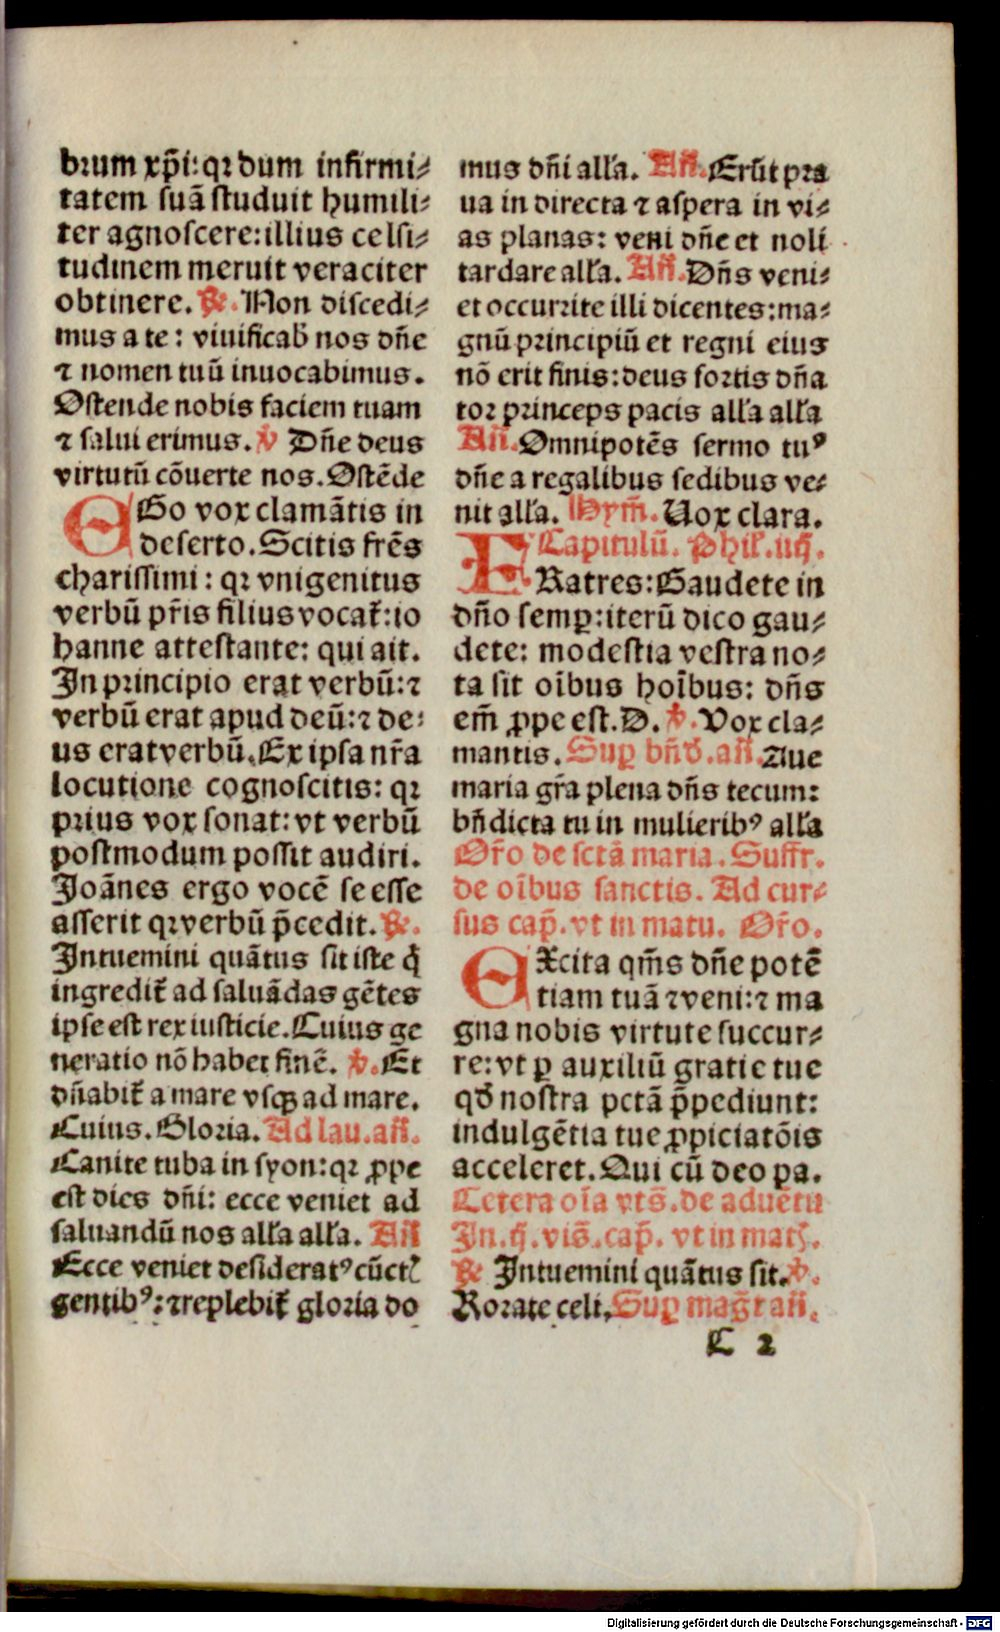 brum xp̃i: qꝛ dum infirmi⸗
tatem suã studuit humili⸗
ter agnoscere: illius celsi⸗
tudinem meruit veraciter
obtinere. ℟. Non discedi⸗
mus a te: viuificab̃ nos dñe
⁊ nomen tuũ inuocabimus.
Ostende nobis faciem tuam
⁊ salui erimus. ℣ Dñe deus
virtutũ cõuerte nos. Ostẽde
EGo vox clamãtis in
deserto. Scitis fr̃es
charissimi: qꝛ vnigenitus
verbũ pr̃is filius vocat̃: io
hanne attestante: qui ait.
In principio erat verbũ: ⁊
verbũ erat apud deũ: ⁊ de⸗
us erat verbũ. Ex ipsa nr̃a
locutione cognoscitis: qꝛ
prius vox sonat: vt verbũ
postmodum possit audiri.
Joãnes ergo vocẽ se esse
asserit qꝛ verbũ p̃cedit. ℟.
Intuemini quãtus sit iste q̃
ingredit̃ ad saluãdas gẽtes
ipse est rex iusticie. Cuius ge
neratio nõ habet finẽ. ℣. Et
dñabit̃ a mare vsqꝫ ad mare.
Cuius. Gloria. Ad lau. añ.
Canite tuba in syon: qꝛ ꝓpe
est dies dñi: ecce veniet ad
saluandũ nos all'a all'a. Añ
Ecce veniet desiderat⁹ cũct̃
gentib⁹: ⁊ replebit̃ gloria do
mus dñi all'a. Añ. Erũt pra
ua in directa ⁊ aspera in vi⸗
as planas: veni dñe et noli
tardare all'a. Añ. Dñs veni⸗
et occurrite illi dicentes: ma⸗
gnũ principiũ et regni eius
nõ erit finis: deus fortis dña
tor princeps pacis all'a all'a
Añ. Omnipotẽs sermo tu⁹
dñe a regalibus sedibus ve⸗
nit all'a. Hym̃. Uox clara.
Capitulũ. Phil'. iiij.
FRatres: Gaudete in
dño semꝑ: iterũ dico gau⸗
dete: modestia vestra no⸗
ta sit oĩbus hoĩbus: dñs
em̃ ꝓpe est. D. ℣. Vox cla⸗
mantis. Suꝑ bñd̃. añ. Aue
maria gr̃a plena dñs tecum:
bñdicta tu in mulierib⁹ all'a
Or̃o de sctã maria. Suffr.
de oĩbus sanctis. Ad cur⸗
sus cap̃. vt in matu. Or̃o.
EXcita qm̃s dñe potẽ
tiam tuã ⁊ veni: ⁊ ma
gna nobis virtute succur⸗
re: vt ꝑ auxiliũ gratie tue
qd̃ nostra pctã p̃pediunt:
indulgẽtia tue ꝓpiciatõis
acceleret. Qui cũ deo pa.
Cetera oĩa vts̃. de aduẽtu
In. ij. vis̃. cap̃. vt in mat̃.
℟ Intuemini quãtus sit. ℣.
Rorate celi. Suꝑ mag̃t añ.
C 2
Digitalisierung gefördert durch die Deutsche Forschungsgemeinschaft - DFG